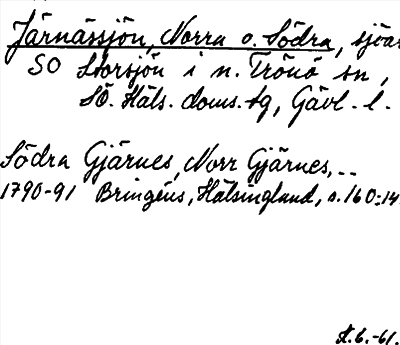 Järnässjön, Norra o. Södra, sjöar
SO Storsjön i n. Trönö sn,
SÖ. Häls. doms. tg, Gävl. l.
Södra Gjärnes, Norr Gjärnes,..
1790-91 Bringéus, Hälsingland, s. 160:14